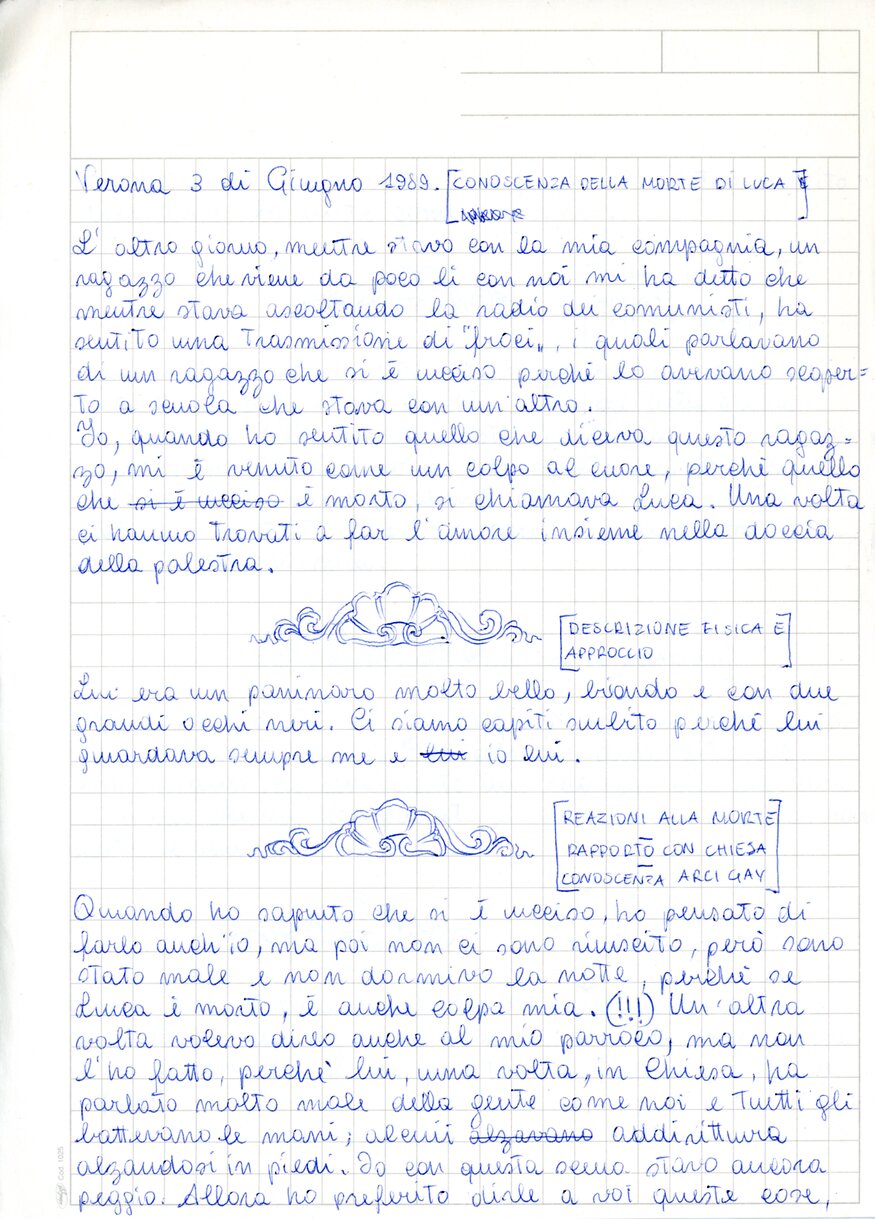 Verona 3 di Giugno 1989. [CONOSCENZA DELLA MORTE DI LUCA E
]
L'altro giorno, mentre stavo con la mia compagnia, un
ragazzo che viene da poco li con noi mi ha detto che
mentre stava ascoltando la radio dei comunisti, ha
sentito una trasmissione di "froci", i quali parlavano
di un ragazzo che si è ucciso perché lo avevano scoper=
to a scuola che stava con un'altro.
Io, quando ho sentito quello che diceva questo ragaz=
zo, mi è venuto come un colpo al cuore, perché quello
che si è ucciso è morto, si chiamava Luca. Una volta
ci hanno trovati a far l'amore insieme nella doccia
della palestra.
[DESCRIZIONE FISICA E
APPROCCIO]
Lui era un paninaro molto bello, biondo e con due
grandi occhi neri. Ci siamo capiti subito perché lui
guardava sempre me e lui io lui.
[REAZIONI ALLA MORTE
RAPPORTO CON CHIESA
CONOSCENZA ARCI GAY]
Quando ho saputo che si è ucciso, ho pensato di
farlo anch'io, ma poi non ci sono riuscito, però sono
stato male e non dormivo la notte, perché se
Luca è morto, è anche colpa mia. (!!!) Un'altra
volta volevo dirlo anche al mio parroco, ma non
l'ho fatto, perché lui, una volta, in Chiesa, ha
parlato molto male della gente come noi e tutti gli
battevano le mani; alcuni alzavano addirittura
alzandosi in piedi. Io con questa scena stavo ancora
peggio. Allora ho preferito dirle a voi queste cose,
Cod. 1025